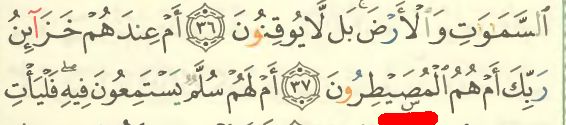 ٱلسَّمَـٰوَٰتِ وَٱلْأَرْضَ ۚ بَل لَّا يُوقِنُونَ ٣٦ أَمْ عِندَهُمْ خَزَآئِنُ
رَبِّكَ أَمْ هُمُ ٱلْمُصَۣيْطِرُونَ ٣٧ أَمْ لَهُمْ سُلَّمٌ يَسْتَمِعُونَ فِيهِ ۖ فَلْيَأْتِ